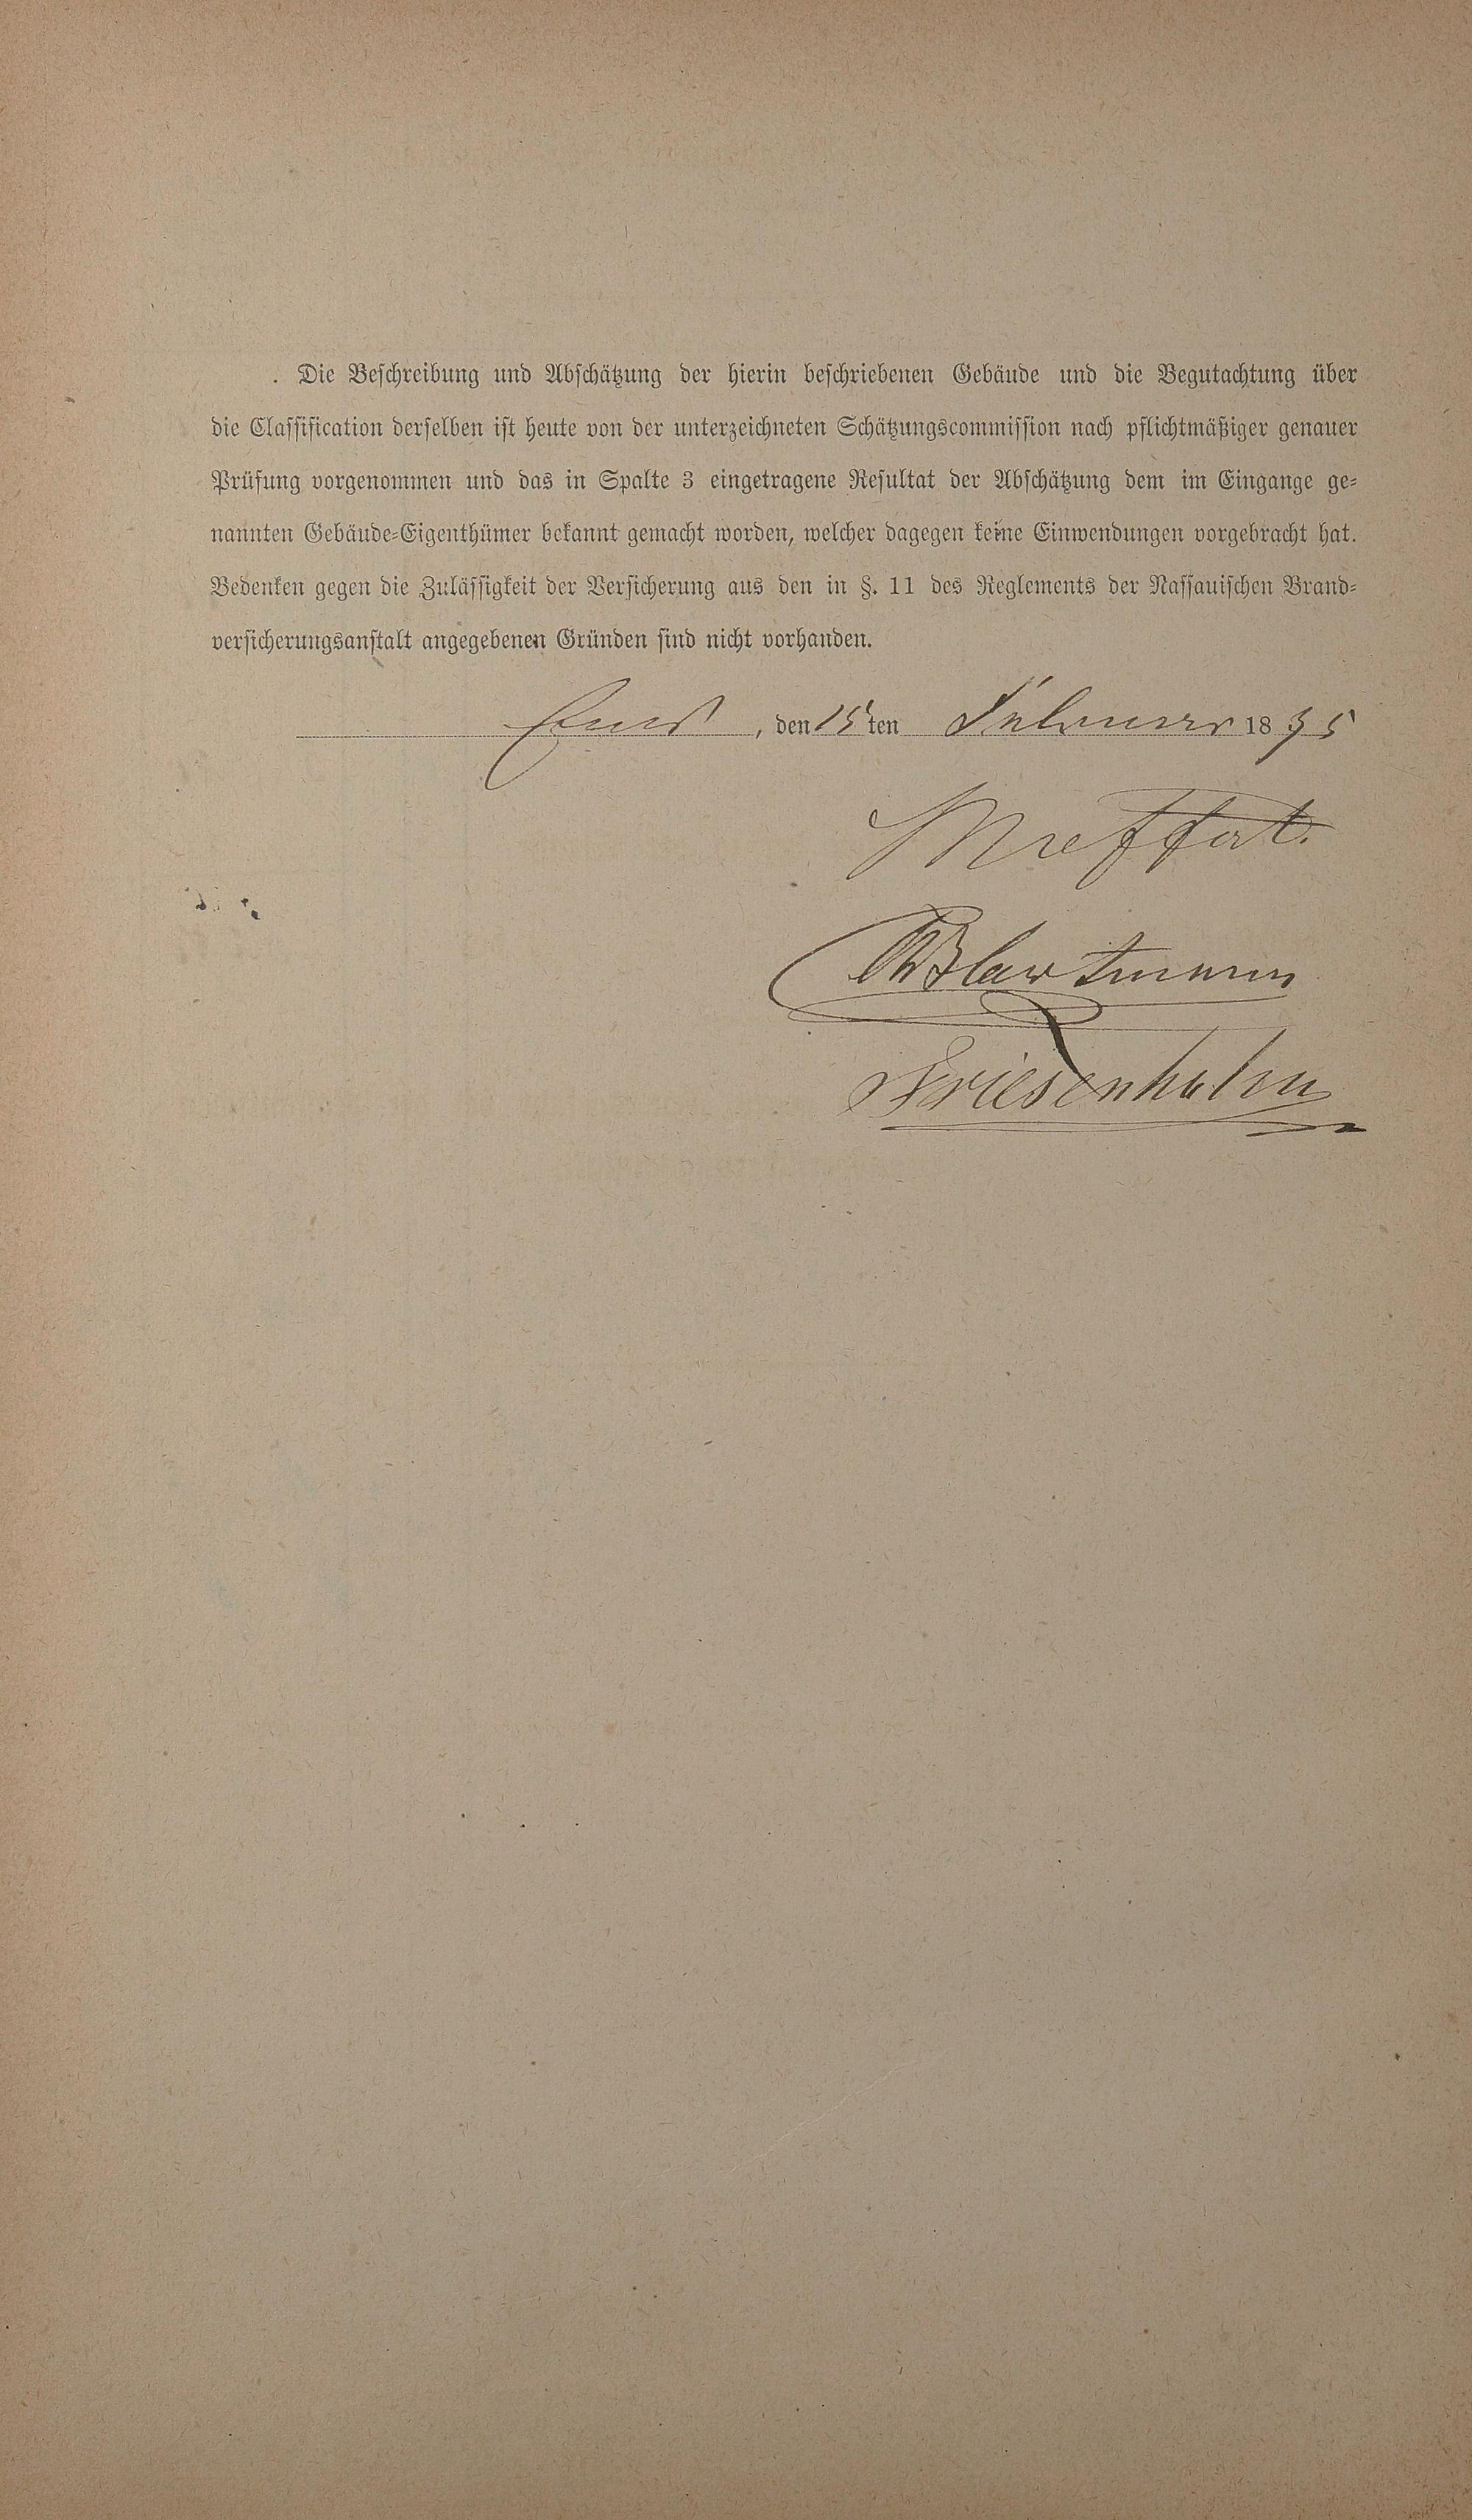 Die Beschreibung und Abschätzung der hierin beschriebenen Gebäude und die Begutachtung über
die Classification derselben ist heute von der unterzeichneten Schätzungscommission nach pflichtmäßiger genauer
Prüfung vorgenommen und das in Spalte 3 eingetragene Resultat der Abschätzung dem im Eingange ge-
nannten Gebäude-Eigenthümer bekannt gemacht worden, welcher dagegen keine Einwendungen vorgebracht hat.
Bedenken gegen die Zulässigkeit der Versicherung aus den in §. 11 des Reglements der Nassauischen Brand-
versicherungsanstalt angegebenen Gründen sind nicht vorhanden.
Ems, den 15ten Februar 1895
Meffert.
Friesenhahn